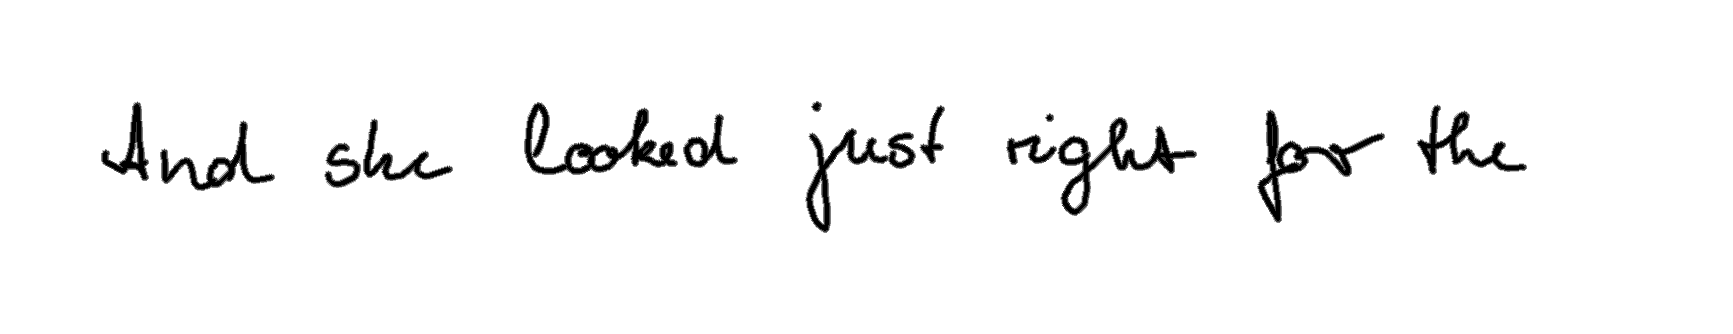 And she looked just right for the